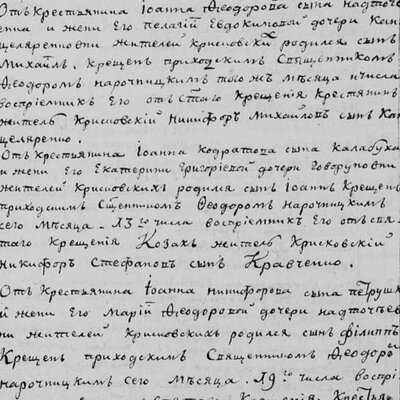 Отъ Крестьянина Іоанна Ѳеодорова сына надточе
енка и жени Его пелагіи Евдокимовой дочери Кан
целяренковни жителей Крисковскихъ родился сынъ
Михаилъ. Крещенъ приходскимъ Священникомъ
Ѳеодоромъ нарочицкимъ того жъ мѣсяца и числа
воспріемникъ Его отъ стаго Крещенія Крестянинъ
житель Крисковскій Никифоръ Михайловъ сынъ Кан
целяренко.
Отъ Крестьянина Іоанна Кодратова сына Калабухи
и жени Его Екатерини Григоріевой дочери Говоруновни
жителей Крисковскихъ родился сынъ Іоаннъ Крещенъ
приходскимъ Сщенникомъ Ѳеодоромъ нарочицкимъ
сего мѣсяца. 13го числа воспріемникъ Его отъ свя
таго Крещенія Козакъ житель Крисковскій
Никифоръ Стефановъ сынъ Кравченко.
Отъ Крестьянина Іоанна Никифорова сына петрушк
и жени Его Маріи Ѳеодоровой дочери надточіев
ни жителей Крисковскихъ родился сынъ Филиппъ
Крещенъ приходскимъ Священникомъ Ѳеодоро
нарочицкимъ сего Мѣсяца. 19го числа воспрі
Крещенія Крестья